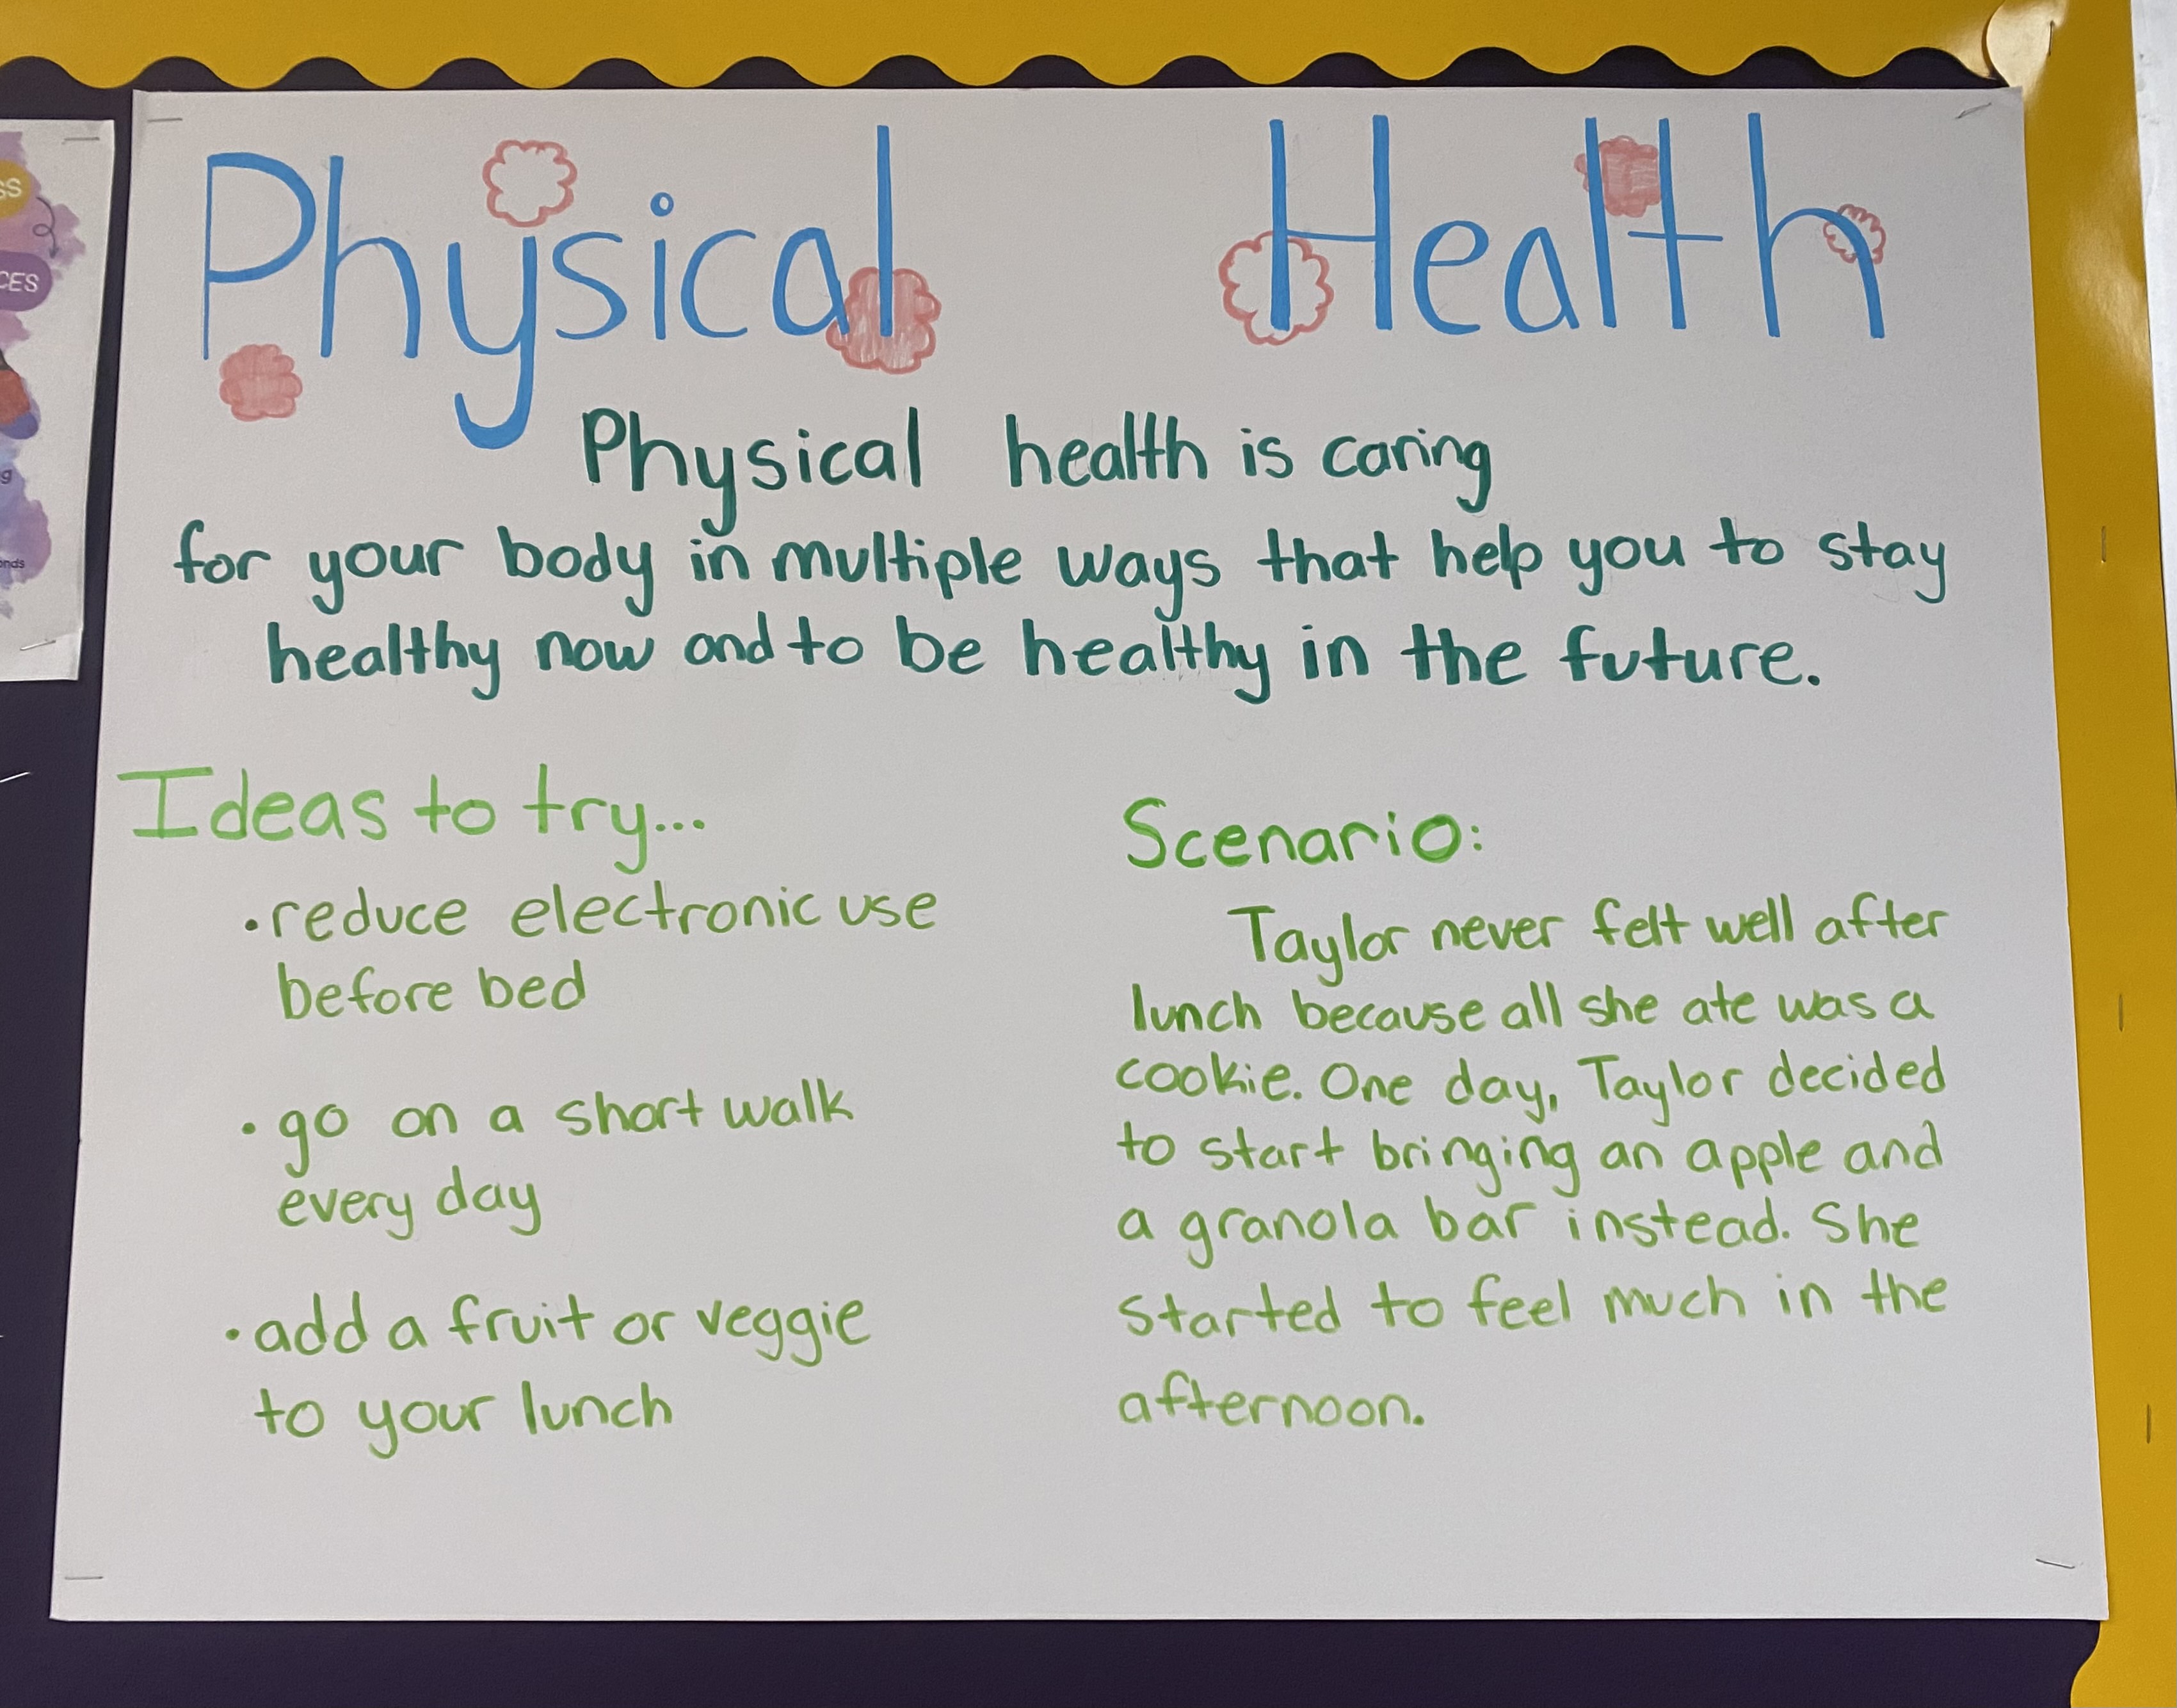 SS
CES
g
onds
Physical Health
Physical health is caring
for your body in multiple ways that help you to stay
healthy now and to be healthy in the future.
Ideas to try...
• reduce electronic use
before bed
• go on a short walk
every day
• add a fruit or veggie
to your lunch
Scenario:
Taylor never felt well after
lunch because all she ate was a
cookie. One day, Taylor decided
to start bringing an apple and
a granola bar instead. She
started to feel much in the
afternoon.